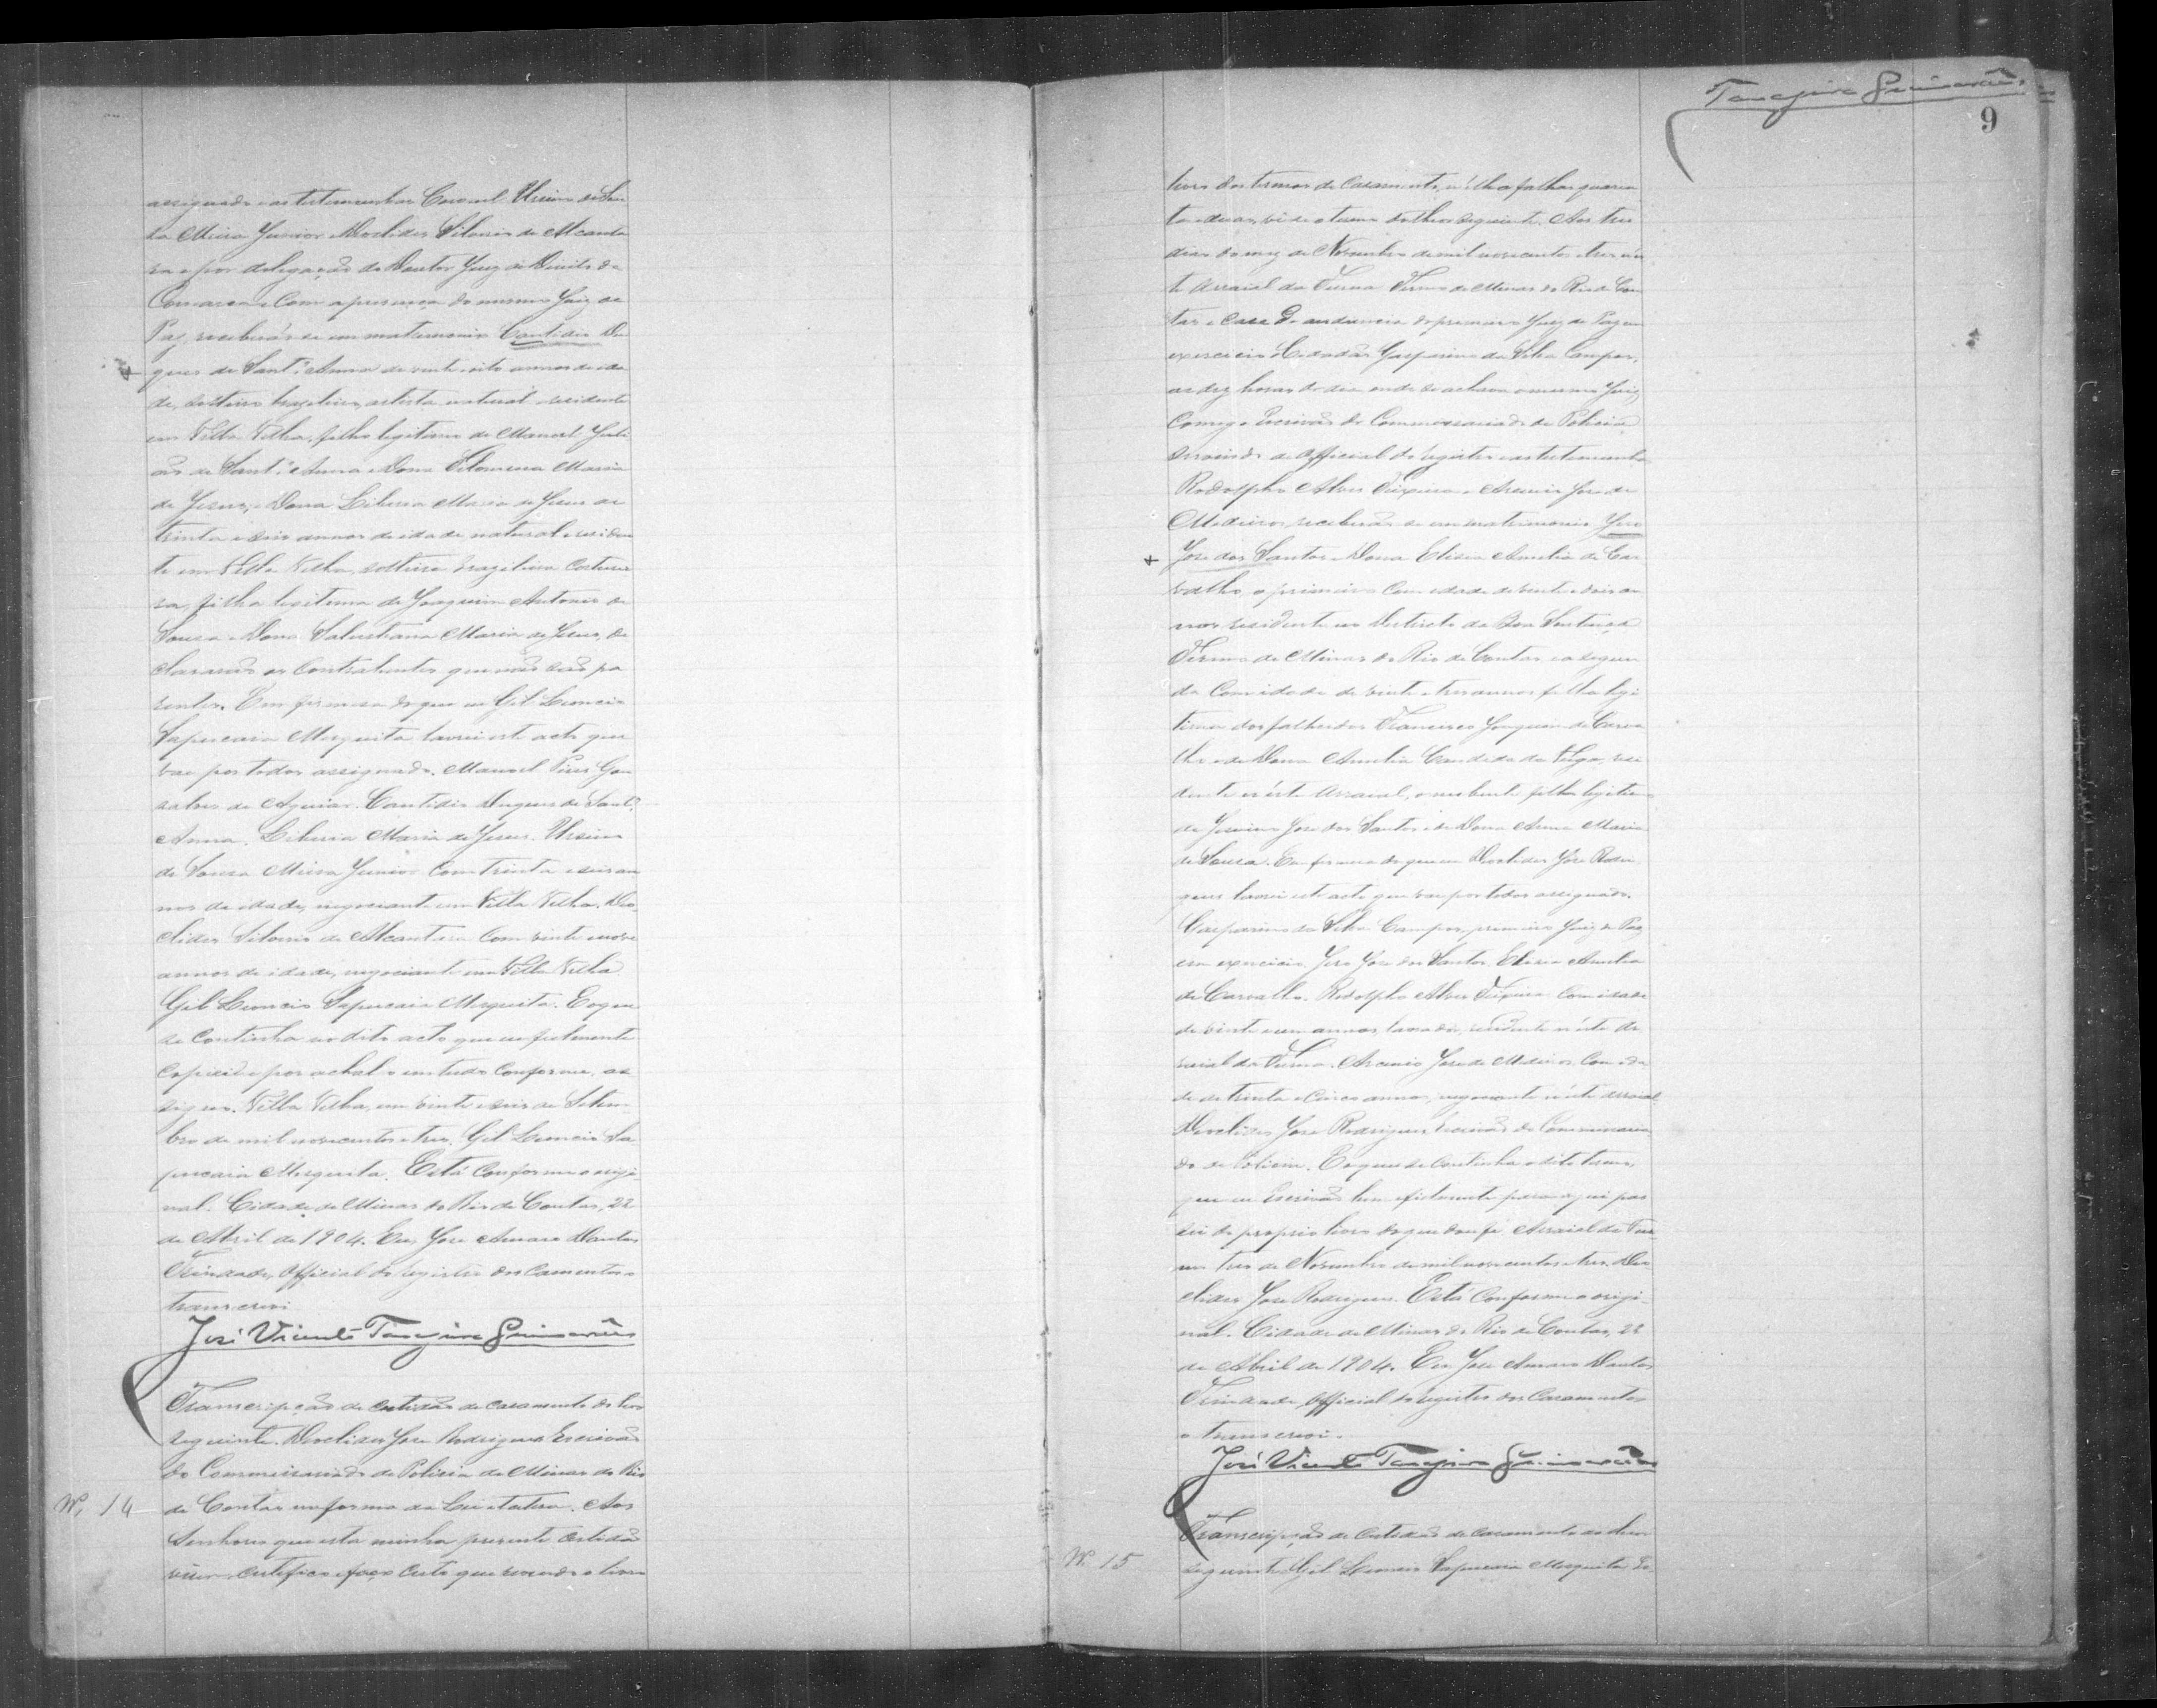 assignado e as testemunhas Coronel Ursino de Sou
za Meira Junior e Deoclides Silverio de Alcanta
ra e por delegação do Doutor Juiz de Direito da
Comarca e com a presença do mesmo Juiz de
Paz, receberão-se em matrimonio Cantidio Du
ques de Sant'Anna de vinte e oito annos de ida
de, solteiro brazileiro, artista natural e residente
em Villa Velha, filho legitimo de Manoel Juli
ão de Sant'Anna e Dona Filomena Maria
de Jesus, e Dona Liberia Maria de Jesus de
trinta e seis annos de idade natural e residen
te em Villa Velha, solteira brazileira costurei
ra, filha legitima de Joaquim Antonio de
Souza e Dona Salustiana Maria de Jesus, de
clararão os contrahentes que não são pa
rentes. E em firmeza do que eu Gil Leoncio
Sapucaia Mesquita lavrei este acto que
vae por todos assignado. Manoel Pires Gon
salves de Aguiar. Cantidio Duques de Sant'
Anna. Liberia Maria de Jesus. Ursino
de Souza Meira Junior com trinta e seis an
nos de idade, negociante em Villa Velha. Deo
clides Silverio de Alcantara com vinte e nove
annos de idade, negociante em Villa Velha
Gil Leoncio Sapucaia Mesquita. E o que
se continha no dito acto que eu fielmente
copiei e por achal-o em tudo conforme, as
signo. Villa Velha, em vinte e seis de Setem
bro de mil novecentos e tres. Gil Leoncio Sa
pucaia Mesquita. Está conforme o origi
nal. Cidade de Minas do Rio de Contas, 22
de Abril de 1904. Eu, José Amaro Dantas
Trindade, Official do registro dos Casamentos o
transcrevi.
José Vicente Tanajura Guimarães
Transcripção da certidão de casamento do teor
seguinte. Deoclides José Rodrigues Escrivão
do Commissariado de Policia de Minas do Rio
Nº 14 de Contas na forma da Lei etcetera. Aos
Senhores que esta minha presente certidão
virem, certifico e faço certo que revendo o livro
Tanajura Guimarães
9
livro dos termos de casamento, n'elle a folhas quaren
ta e duas, vi de o termo do theor seguinte. Aos tres
dias do mez de Novembro de mil novecentos e tres n'es
te Arraial da Furna Termo de Minas do Rio de Con
tas e casa de audiencia do primeiro Juiz de Paz em
exercicio Cidadão Gasparino da Silva Campos,
as dez horas do dia onde se achava o mesmo Juiz
comigo Escrivão do Commissariado de Policia
servindo de Official do registro e as testemunhas
Rodolpho Alves Teixeira e Arsenio José de
Medeiros, receberão-se em matrimonio
José dos Santos e Dona Elisia Amelia de Car
valho o primeiro com idade de vinte e dois an
nos residente no Districto da Boa Sentença
Termo de Minas do Rio de Contas e a segun
da com idade de vinte e tres annos, filha legi
tima dos fallecidos Francisco Joaquim de Carva
lho e de Dona Amelia Candida da Veiga, resi
dente n'este Arraial, o nubente filho legitimo
de José dos Santos e de Dona Anna Maria
de Souza. E em firmeza do que eu Deoclides José Rodri
gues lavrei este acto que vae por todos assignado.
Gasparino da Silva Campos, primeiro Juiz de Paz
em exercicio. José dos Santos. Elisia Amelia
de Carvalho. Rodolpho Alves Teixeira com idade
de vinte e um annos, lavrador, residente n'este Ar
raial da Furna. Arsenio José de Medeiros com ida
de de trinta e cinco annos, negociante n'este Arraial.
Deoclides José Rodrigues Escrivão do Commissaria
do de Policia. E o que se continha o dito termo,
que eu Escrivão bem e fielmente para aqui pas
sei do proprio livro do que dou fé. Arraial da Fur
na tres de Novembro de mil novecentos e tres. Deo
clides José Rodrigues. Está conforme o origi
nal. Cidade de Minas do Rio de Contas, 22
de Abril de 1904. Eu José Amaro Dantas
Trindade Official do registro dos Casamentos
o transcrevi.
José Vicente Tanajura Guimarães
Transcripção da certidão de casamento do teor
Nº 15 seguinte Gil Leoncio Sapucaia Mesquita